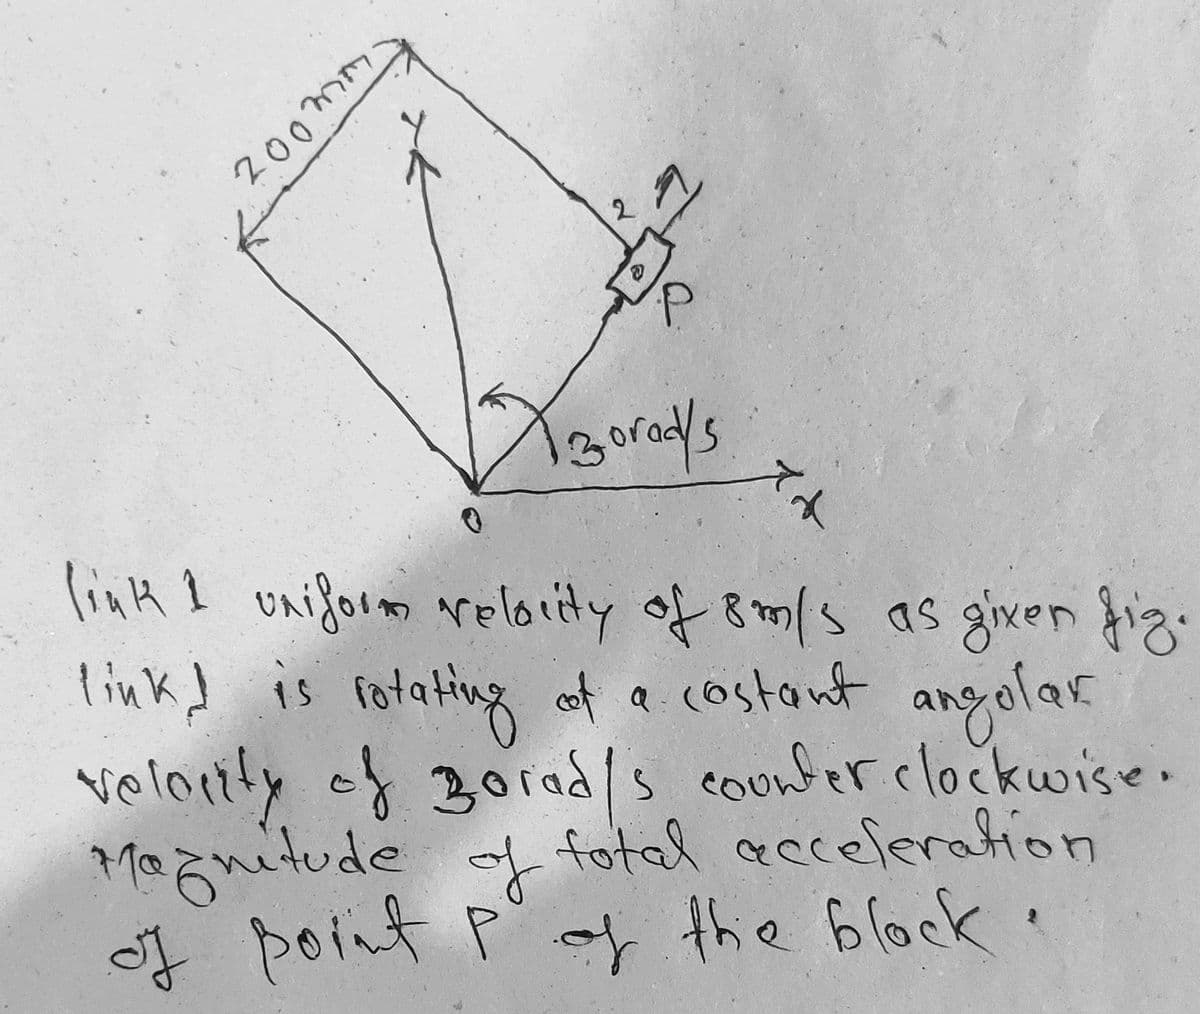 200mm
Y
2
P
30rad/s
x
O
link 1 uniform velocity of 8m/s as given fig.
link 1 is rotating at a costant angolar
velocity of 30rad/s counter clockwise.
Magnetude of total acceleration
of point P of the block.